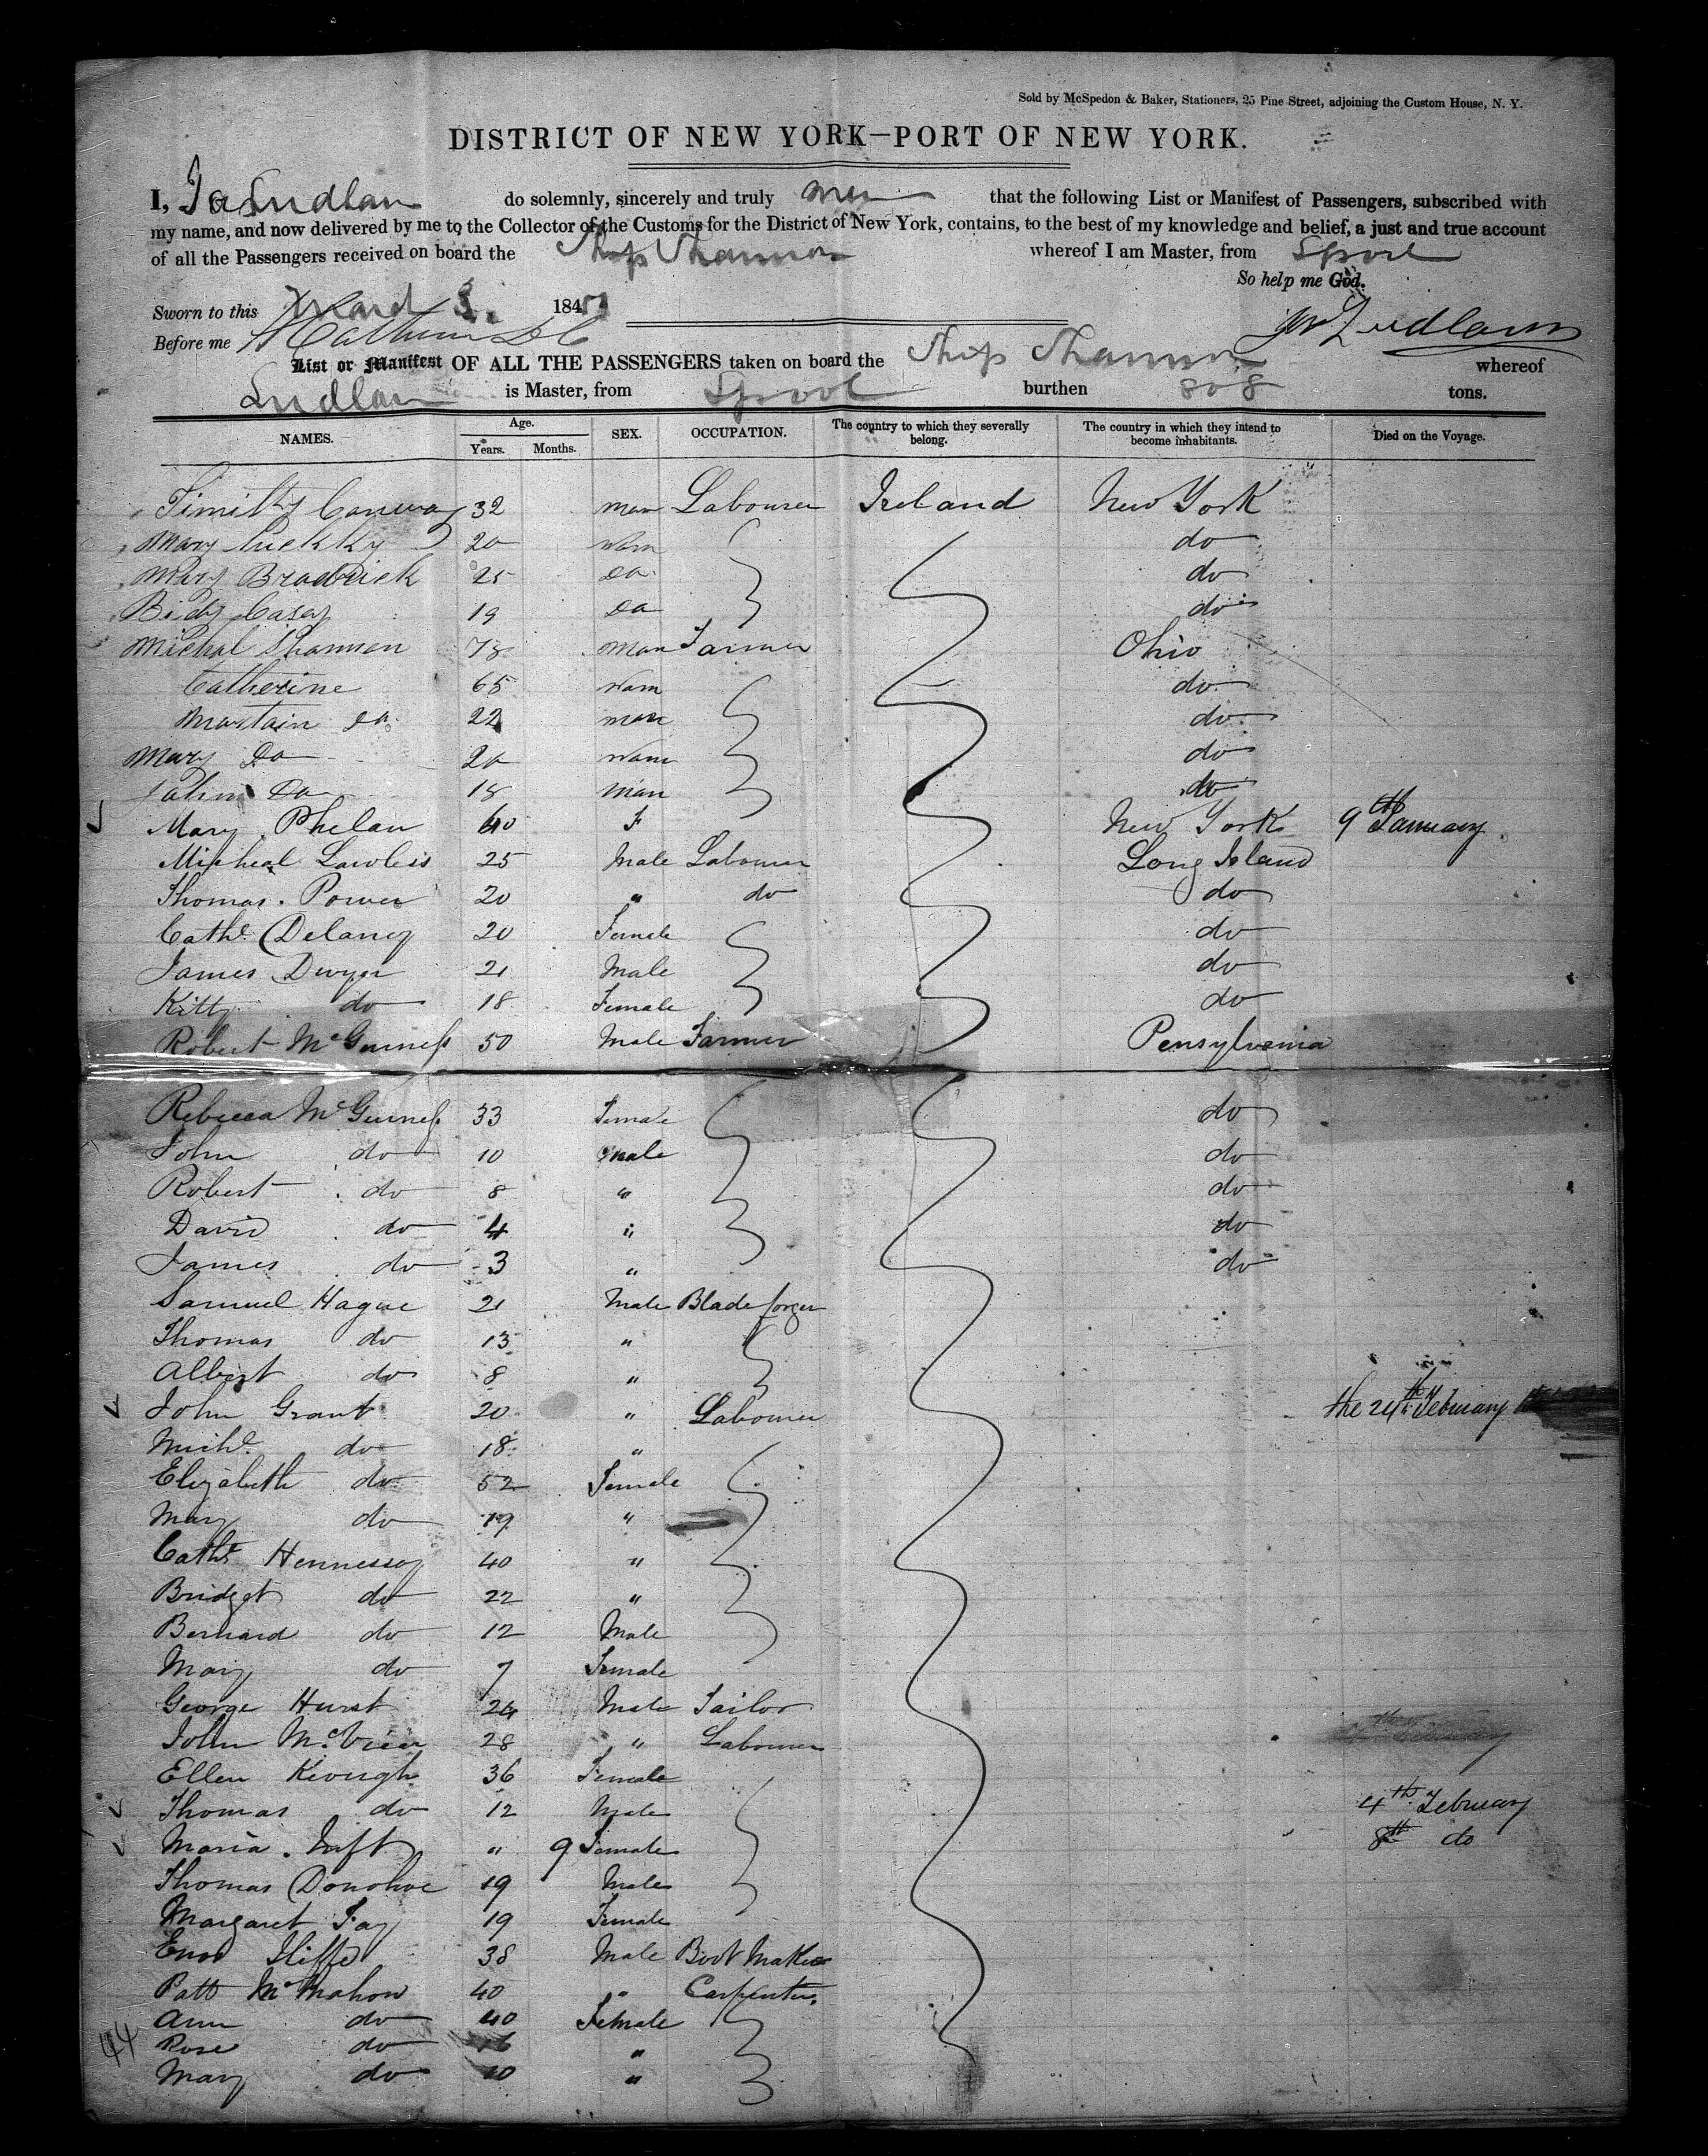 Sold by McSpedon & Baker, Stationers, 25 Pine Street, adjoining the Custom House, N. Y.
DISTRICT OF NEW YORK—PORT OF NEW YORK.
I, Ludlam do solemnly, sincerely and truly that the following List or Manifest of Passengers, subscribed with
my name, and now delivered by me to the Collector of the Customs for the District of New York, contains, to the best of my knowledge and belief, a just and true account
of all the Passengers received on board the Ship Shannon whereof I am Master, from Lpool
So help me God.
Sworn to this March 3. 184
Before me Ludlam
List or Manifest OF ALL THE PASSENGERS taken on board the Ship Shannon whereof
Ludlam is Master, from Lpool burthen 808 tons.
NAMES. Age. Years. Months. SEX. OCCUPATION. The country to which they severally belong. The country in which they intend to become inhabitants. Died on the Voyage.
Timithy Conway 32 man Labourer Ireland New York
Mary 20 wom do
Mary Bradrick 25 Do do
Bidy Casey 19 Do do
Michal Shannon 78 man Farmer Ohio
Catherine 65 wom do
Martain Do 22 man do
Mary Do 20 wom do
Do 18 man do
Mary Phelan 40 F New York 9th January
Micheal Lawless 25 Male Labourer Long Island
Thomas. Power 20 " do do
Cathe Delaney 20 Female do
James Dwyer 21 Male do
Kitty do 18 Female do
Robert McGuiness 50 Male Farmer Pensylvania
Rebecca McGuiness 33 Female do
John do 10 male do
Robert do 8 " do
David do 4 " do
James do 3 " do
Samuel Hague 21 Male Blade forger
Thomas do 13 "
Albert do 8 "
John Grant 20 " Labourer the 24th February
Michl do 18 "
Elizabeth do 52 Female
Mary do 19 "
Cathe Hennessy 40 "
Bridget do 22 "
Bernard do 12 Male
Mary do 7 Female
George Hurst 24 Male Tailor
John 28 " Labourer
Ellen Keough 36 Female
Thomas do 12 Male 4th February
Maria. Tuft " 9 Female 8th do
Thomas Donohoe 19 Male
Margaret Fay 19 Female
Enos Iliffe 38 Male Boot Maker
Patt McMahon 40 " Carpenter.
Ann do 40 Female
44
Rose do 16 "
Mary do 10 "